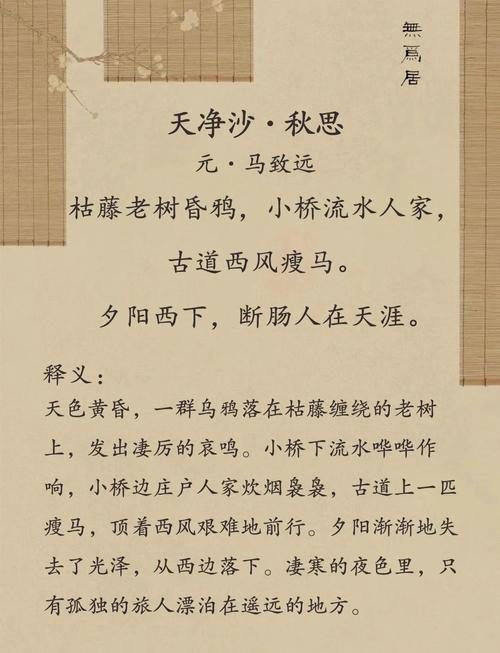 無爲居
天净沙·秋思
元·马致远
枯藤老树昏鸦，小桥流水人家，
古道西风瘦马。
夕阳西下，断肠人在天涯。
释义：
天色黄昏，一群乌鸦落在枯藤缠绕的老树
上，发出凄厉的哀鸣。小桥下流水哗哗作
响，小桥边庄户人家炊烟袅袅，古道上一匹
瘦马，顶着西风艰难地前行。夕阳渐渐地失
去了光泽，从西边落下。凄寒的夜色里，只
有孤独的旅人漂泊在遥远的地方。